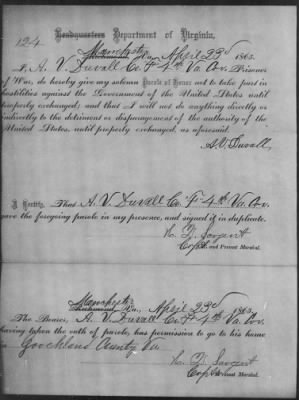 Headquarters Department of Virginia,
124
Manchester
Richmond, Va., April 23d 1865.
I, A. V. Duvall Co. F. 4th Va. Cv. Prisoner
of War, do hereby give my solemn Parole of Honor not to take part in
hostilities against the Government of the United States until
properly exchanged; and that I will not do anything directly or
indirectly to the detriment or disparagement of the authority of the
United States, until properly exchanged, as aforesaid.
A. V. Duvall
I Certify, That A. V. Duvall Co. F. 4th Va. Cv.
gave the foregoing parole in my presence, and signed it in duplicate.
D. Sargent
Capt. and Provost Marshal.
Manchester
Richmond, Va., April 23d
The Bearer, A. V. Duvall Co. F. 4th Va. Cv.
having taken the oath of parole, has permission to go to his home
in Goochland County Va
D. Sargent
Capt. and Provost Marshal.